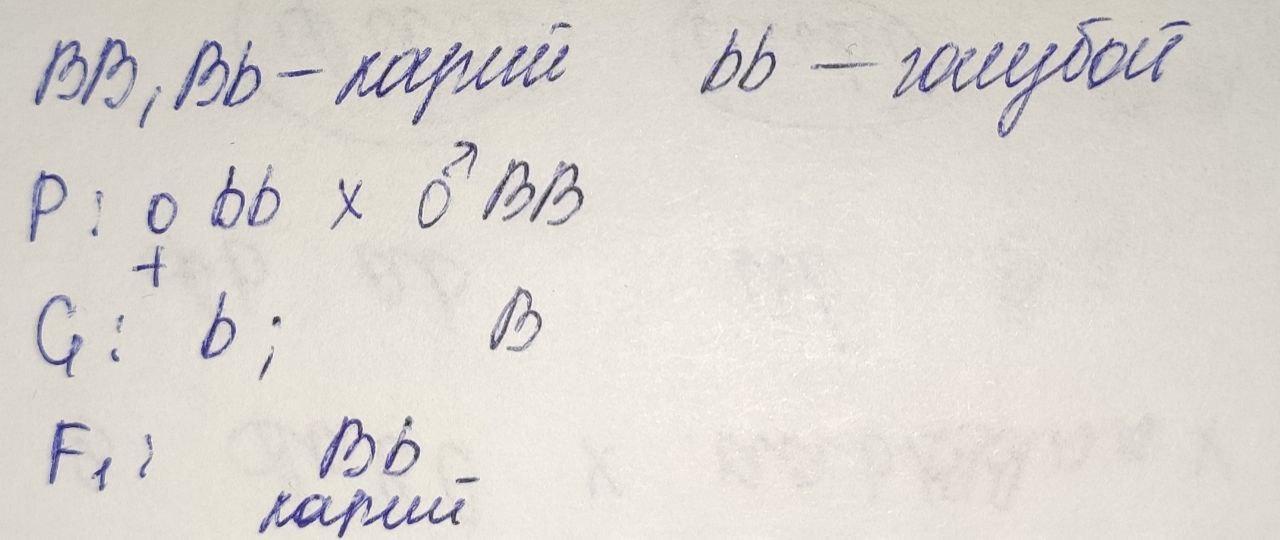 BB, Bb – карий bb – голубой
P: ♀ bb x ♂ BB
G: b; B
F₁: Bb
карий